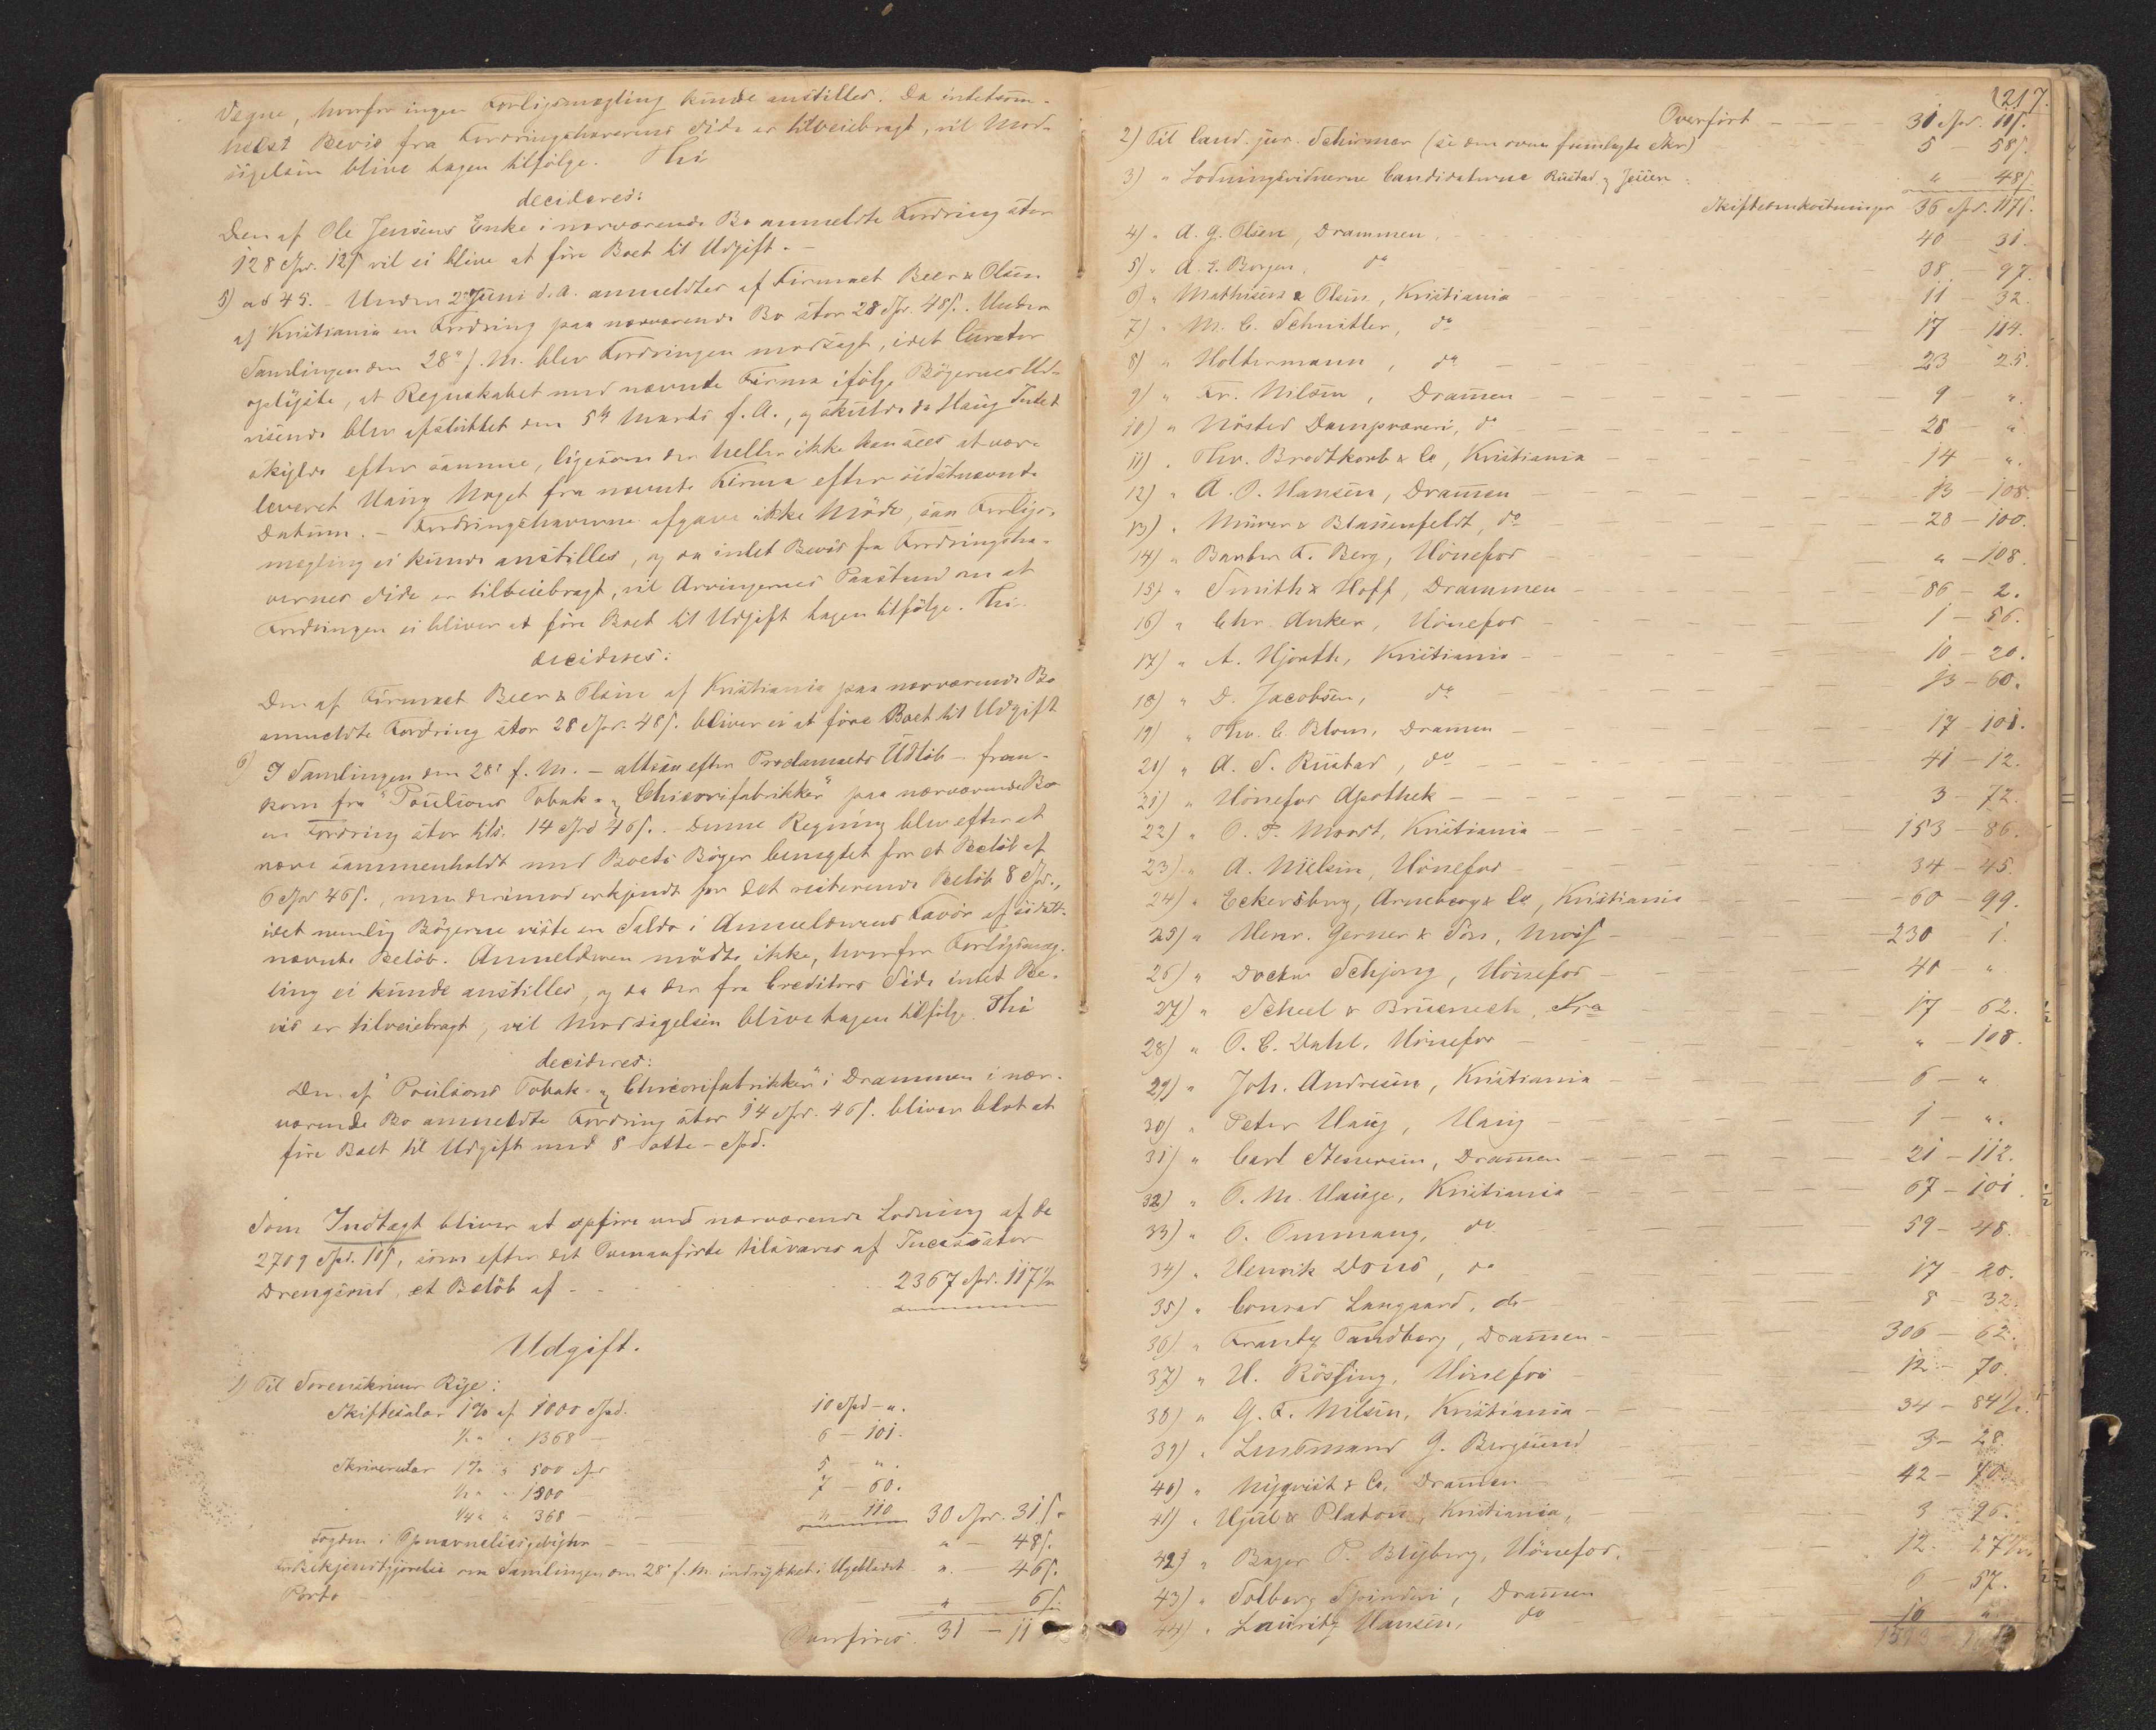 Vegne, hvorfor ingen Forligsmægling kunde anstilles. Da intetsom-
helst Bevis fra Fordringshaverens Side er tilveiebragt, vil Mod-
sigelsen blive tagen tilfølge. Thi
decideres:
Den af Ole Jensens Enke i nærværende Bo anmeldte Fordring stor
128 Spd. 12 ß vil ei blive at føre Boet til Udgift. -
5) ad 45. - Under 2den Juni d. A. anmeldtes af Firmaet Beer & Olsen
af Kristiania en Fordring paa nærværende Bo stor 28 Spd. 48 ß. Under
Samlingen den 28de f. M. blev Fordringen modsagt, idet Curator
oplyste, at Regnskabet med nævnte Firma ifølge Bøgernes Ud-
visende blev afsluttet den 5te Marts f. A., og skulde da Haug Intet
skylde efter samme, ligesom der heller ikke kan sees at være
leveret Haug Noget fra nævnte Firma efter sidstnævnte
Datum. - Fordringshaverne afgave ikke Møde, saa Forligs-
mægling ei kunde anstilles, og da intet Bevis fra Fordringsha-
vernes Side er tilveiebragt, vil Arvingernes Paastand om at
Fordringen ei bliver at føre Boet til Udgift tagen tilfølge. Thi
decideres:
Den af Firmaet Beer & Olsen af Kristiania paa nærværende Bo
anmeldte Fordring stor 28 Spd. 48 ß. bliver ei at føre Boet til Udgift
6) I Samlingen den 28de f. M. - altsaa efter Proclamaets Udløb - frem-
kom fra "Poulsons Tobak- og Chicorifabrikker" paa nærværende Bo
en Fordring stor tils. 14 Spd 46 ß. - Denne Regning blev efter at
være sammenholdt med Boets Bøger benegtet for et Beløb af
6 Spd 46 ß., men derimod erkjendt for det resterende Beløb 8 Spd.,
idet nemlig Bøgerne viste en Saldo i Anmelderens Favør af sidst-
nævnte Beløb. Anmelderen mødte ikke, hvorfor Forligsmæg-
ling ei kunde anstilles, og da der fra Creditors Side intet Be-
vis er tilveiebragt, vil Modsigelsen blive tagen tilfølge. Thi
decideres:
Den af "Poulsons Tobak- og Chicorifabrikker" i Drammen i nær-
værende Bo anmeldte Fordring stor 14 Spd. 46 ß. bliver blot at
føre Boet til Udgift med 8 - otte - Spd.
Som Indtægt bliver at opføre ved nærværende Lodning af de
2709 Spd. 10 ß, som efter det Ovenanførte tilsvares af Incassator
Drengsrud, et Beløb af - 2367 Spd. 117 ½
Udgift.
1) Til Sorenskriver Rye:
Skiftesalar 1% af 1000 Spd. 10 Spd - ".
½ " " 1368 - 6 - 101.
Skriversalar 1% " 500 Spd 5 - ".
½ " " 1500 7 - 60.
¼ " " 368 - " 110 30 Spd. 31 ß.
Fogden i Opnævnelsesgebyhr - " - 48 ß.
om Samlingen den 28de f. M. indrykket i Ugebladet " - 46 ß.
Porto " 6 ß
Overføres 31 - 11
217.
Overført - 31 Spd. 11 ß.
2) Til Cand. jur. Schirmer (se den oven fremlagte Skr) 5 - 58 ß.
3) " Lodningsvidnerne Candidaterne Rustad og Jeüen " 48 ß.
Skifteomkostninger 36 Spd. 117 ß.
4) " A. G. Olsen, Drammen, 40 - 31.
5) " A. E. Borgen, do 38 - 97.
6) " Mathisen & Olsen, Kristiania 11 - 32.
7) " M. C. Schnitler, do 17 - 114.
8) " Holtermann, do 23 - 25.
9) " Fr. Nilsen, Drammen 9 - ".
10) " Nøsted Dampvæveri, do 28 - "
11) " Thv. Brodtkorb & Co, Kristiania 14 - ".
12) " A. P. Hansen, Drammen 13 - 108.
13) " Mürer & Blauenfeldt, do 28 - 100.
14) " Bander F. Berg, Hønefos " - 108.
15) " Smith & Hoff, Drammen 86 - 2.
16) " Chr. Anker, Hønefos 1 - 56.
17) " A. Hjorth, Kristiania 10 - 20.
18) " D. Jacobsen, do 13 - 60.
19) " Thv. C. Blom, Drammen 17 - 101.
20) " A. S. Rustad, do 41 - 12.
21) " Hønefos Apothek 3 - 72.
22) " O. P. Moodt, Kristiania 153 - 86.
23) " A. Nielsen, Hønefos 34 - 45.
24) " Eckersberg, Arneberg & Co, Kristiania 60 - 99.
25) " Henr. Gerner & Søn, Moss 230 - 1.
26) " Doctor Schjong, Hønefos 40 "
27) " Scheel & Bruenech, Kra 17 - 62. ½
28) " O. C. Dahl, Hønefos " - 108.
29) " Joh. Andresen, Kristiania 6 - "
30) " Peter Haug, Haug 1 - ".
31) " Carl Stenersen, Drammen 21 - 112.
32) " O. M. Hauge, Kristiania 67 - 101. ½
33) " O. Ommang, do 59 - 48.
34) " Henrik Dons, do 17 - 20.
35) " Conrad Langaard, do 8 - 32.
36) " Frantz Tandberg, Drammen 306 - 62.
37) " H. Røssing, Hønefos 12 - 70.
38) " G. F. Nilsen, Kristiania 34 - 84 ½.
39) " Lensmand G. Bergsund 3 - 28.
40) " Nyqvist & Co, Drammen 42 - 70.
41) " Hjul & Platou, Kristiania, 3 96.
42) " Bager P. Blyberg, Hønefos. 12. 27 ½
43) " Solberg Spinderi, Drammen 6 - 57. ½
44) " Lauritz Hansen, do 16 "